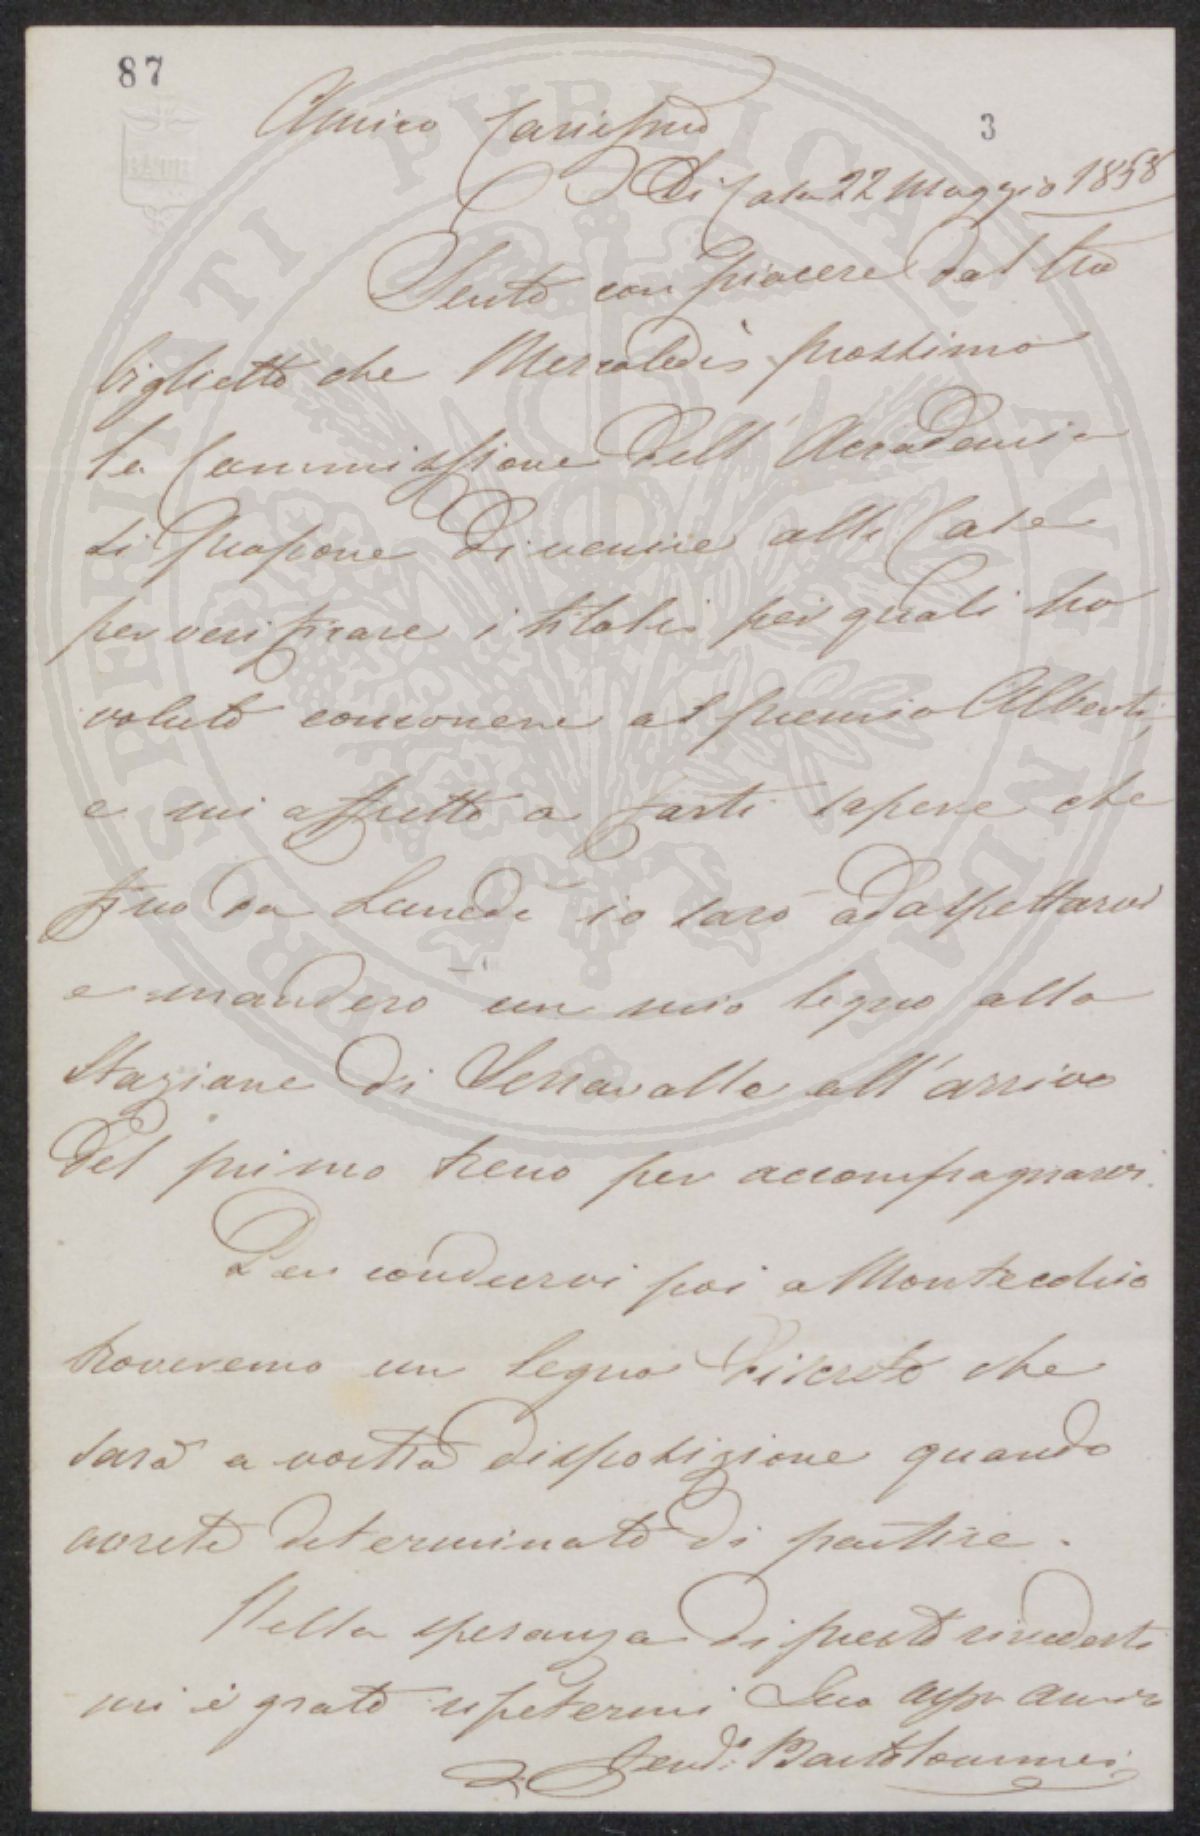 87
3
Amico Carissimo
Di Casa 22 Maggio 1858
Sento con piacere dal tuo
biglietto che Mercoledì prossimo
la Commissione dell' Accademia
si propone di venire alle Case
per verificare i titoli pei quali ho
voluto concorrere al premio Alberti,
e mi affretto a farti sapere che
fino da Lunedì io sarò ad aspettarvi
e manderò un mio legno alla
Stazione di Serravalle all' arrivo
del primo treno per accompagnarvi.
Per condurvi poi a Montecchio
troveremo un legno discreto che
sarà a vostra disposizione quando
avrete determinato di partire.
Nella speranza di presto rivederti
mi è grato ripetermi Suo affo amico
Ferd.o Bartolommei
PROSPERITATI PUBLICAE AVGENDAE